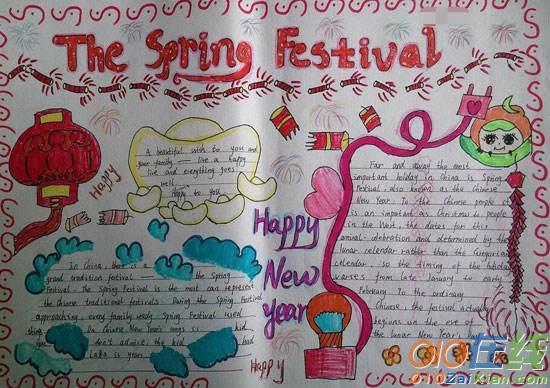 The Spring Festival
A beautiful wish to you and
your family — live a happy
list and everything goes
well.
Happy to you
Happy
Happy
New
year
Happy
Far and away the most
important holiday in China is Spring
Festival, also known as the Chinese
New Year. To the Chinese people it
is an important as Christmas to people
in the West. the dates for this
annual debration and determined by the
lunar calendar rather than the Gregorian
calendar, so the timing of the holiday
varses from late January to early
February To the ordinary
Chinese, the festival actually
begins on the eve of
the lunar New Year's
In China, that is a
grand tradition festival — the Spring
Festival. The Spring Festival is the most can represent
the Chinese traditional festivals. During the Spring Festival
approaching, every family ready Spring Festival used
thing Da Chinese New Year's song is kid
don't admire, the kid had
LaBa is years
QQ在线
qqzaixian.com